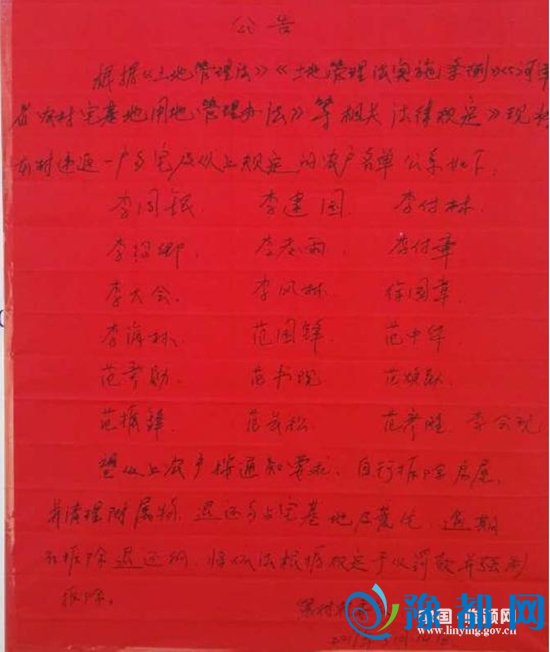 公告
根据《土地管理法》《土地管理法实施条例》《河南
省农村宅基地用地管理办法》等相关法律规定》现将
我村违返一户多宅及以上规定的农户名单公示如下:
李同银 李建国 李付林
李绍卿 李志雨 李付章
李大会 李凤林 徐国章
李海林 范国锋 范中华
范孝勋 范书现
范振锋 范孝胜 李公现
望以上农户按通知要求,自行拆除房屋,
并清理附属物,退还多占宅基地及荒宅,逾期
不拆除退还的,将依法根据规定予以罚款并强制
拆除。
豫都网
中国·临颍网
www.linying.gov.cn